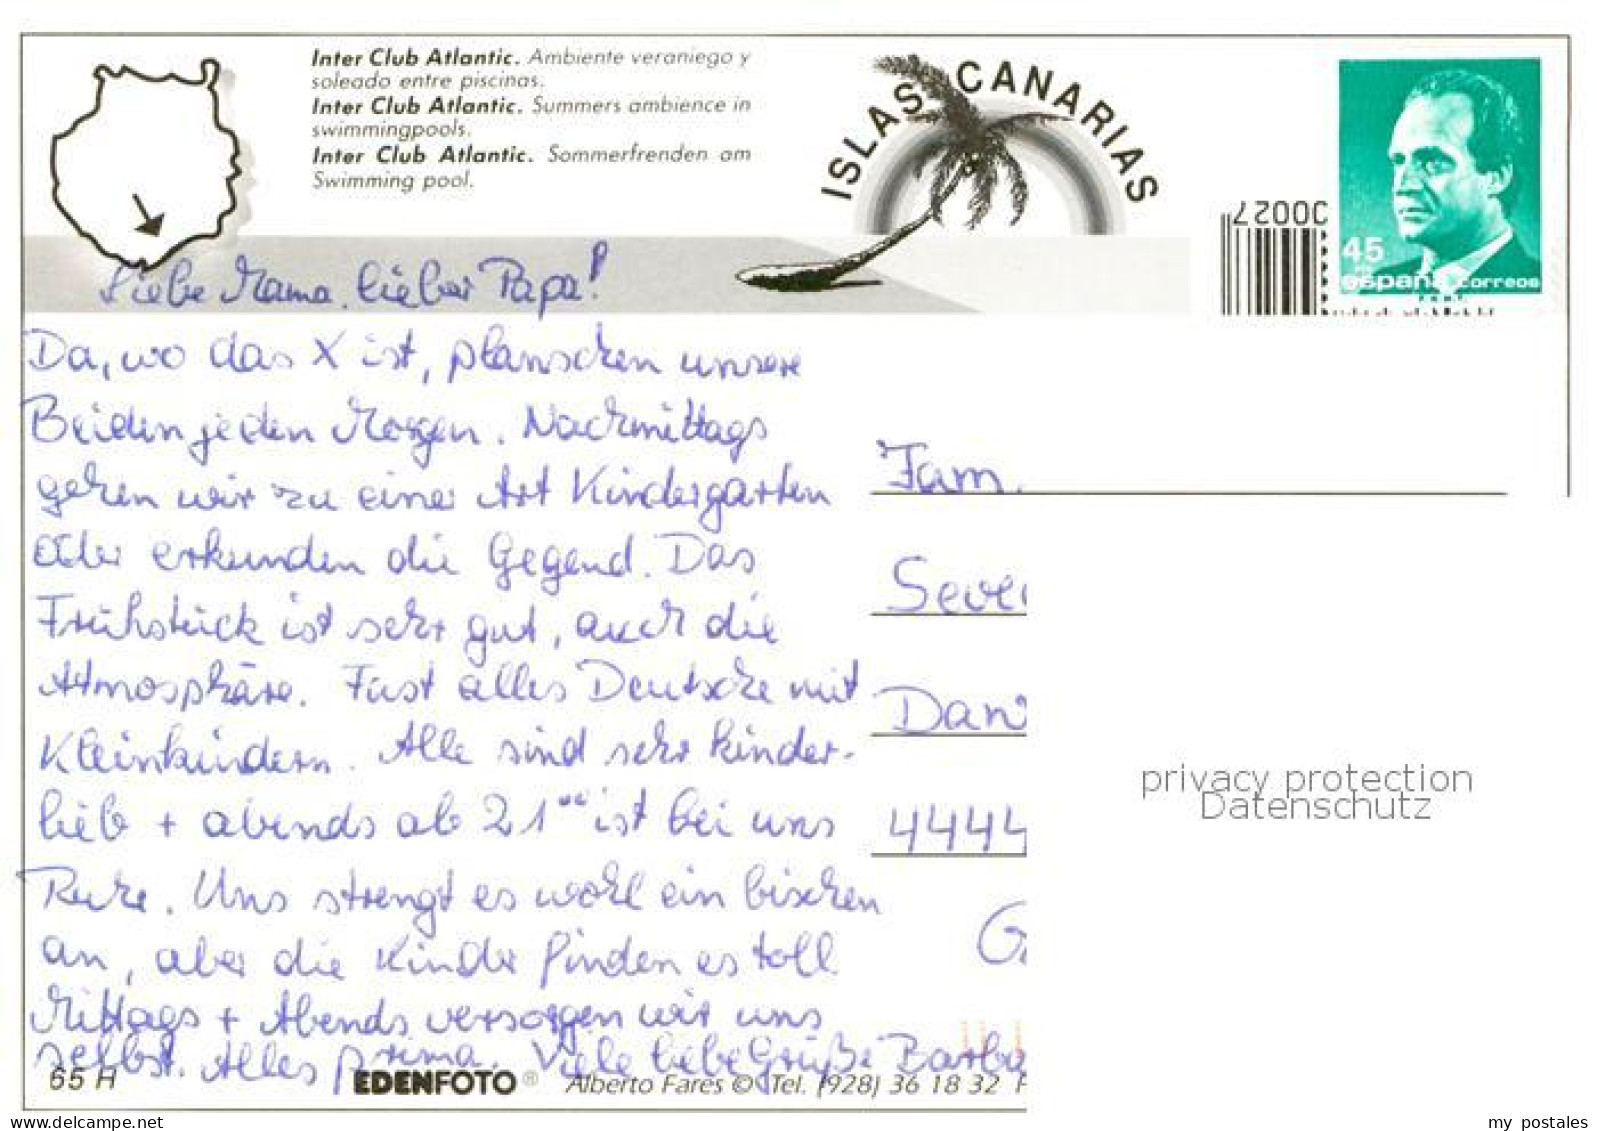 Inter Club Atlantic. Ambiente veraniego y
soleado entre piscinas.
Inter Club Atlantic. Summers ambience in
swimmingpools.
Inter Club Atlantic. Sommerfrenden am
Swimming pool.
ISLAS CANARIAS
45
españa correos
Liebe Mama, lieber Papa!
Da, wo das X ist, planschen unsere
Beiden jeden Morgen. Nachmittags
gehen wir zu einer Art Kindergarten
oder erkunden die Gegend. Das
Frühstück ist sehr gut, auch die
Atmosphäre. Fast alles Deutsche mit
Kleinkindern. Alle sind sehr kinder-
lieb + abends ab 21°° ist bei uns
Ruhe. Uns strengt es wohl ein bischen
an, aber die Kinder finden es toll
Mittags + Abends versorgen wir uns
selbst. Alles prima. Viele liebe Grüße Barba
Fam.
Seve
Dan
4444
G
65 H
EDENFOTO® Alberto Fares © Tel. (928) 36 18 32 F
privacy protection
Datenschutz
my postales